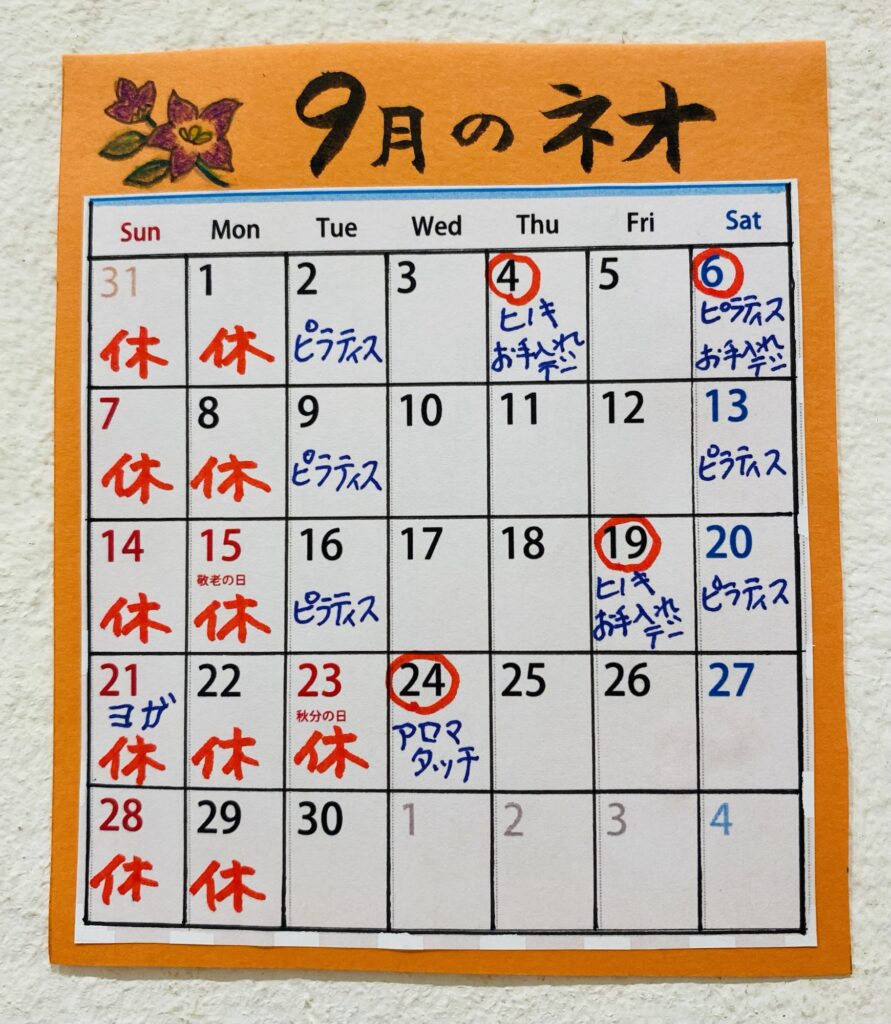 9月のネオ
Sun Mon Tue Wed Thu Fri Sat
31 1 2 3 4 5 6
休 休 ピラティス ヒノキ ピラティス
お手入れ お手入れ
デー デー
7 8 9 10 11 12 13
休 休 ピラティス ピラティス
14 15 16 17 18 19 20
敬老の日
休 休 ピラティス ヒノキ ピラティス
お手入れ
デー
21 22 23 24 25 26 27
ヨガ 秋分の日 アロマ
休 休 休 タッチ
28 29 30 1 2 3 4
休 休